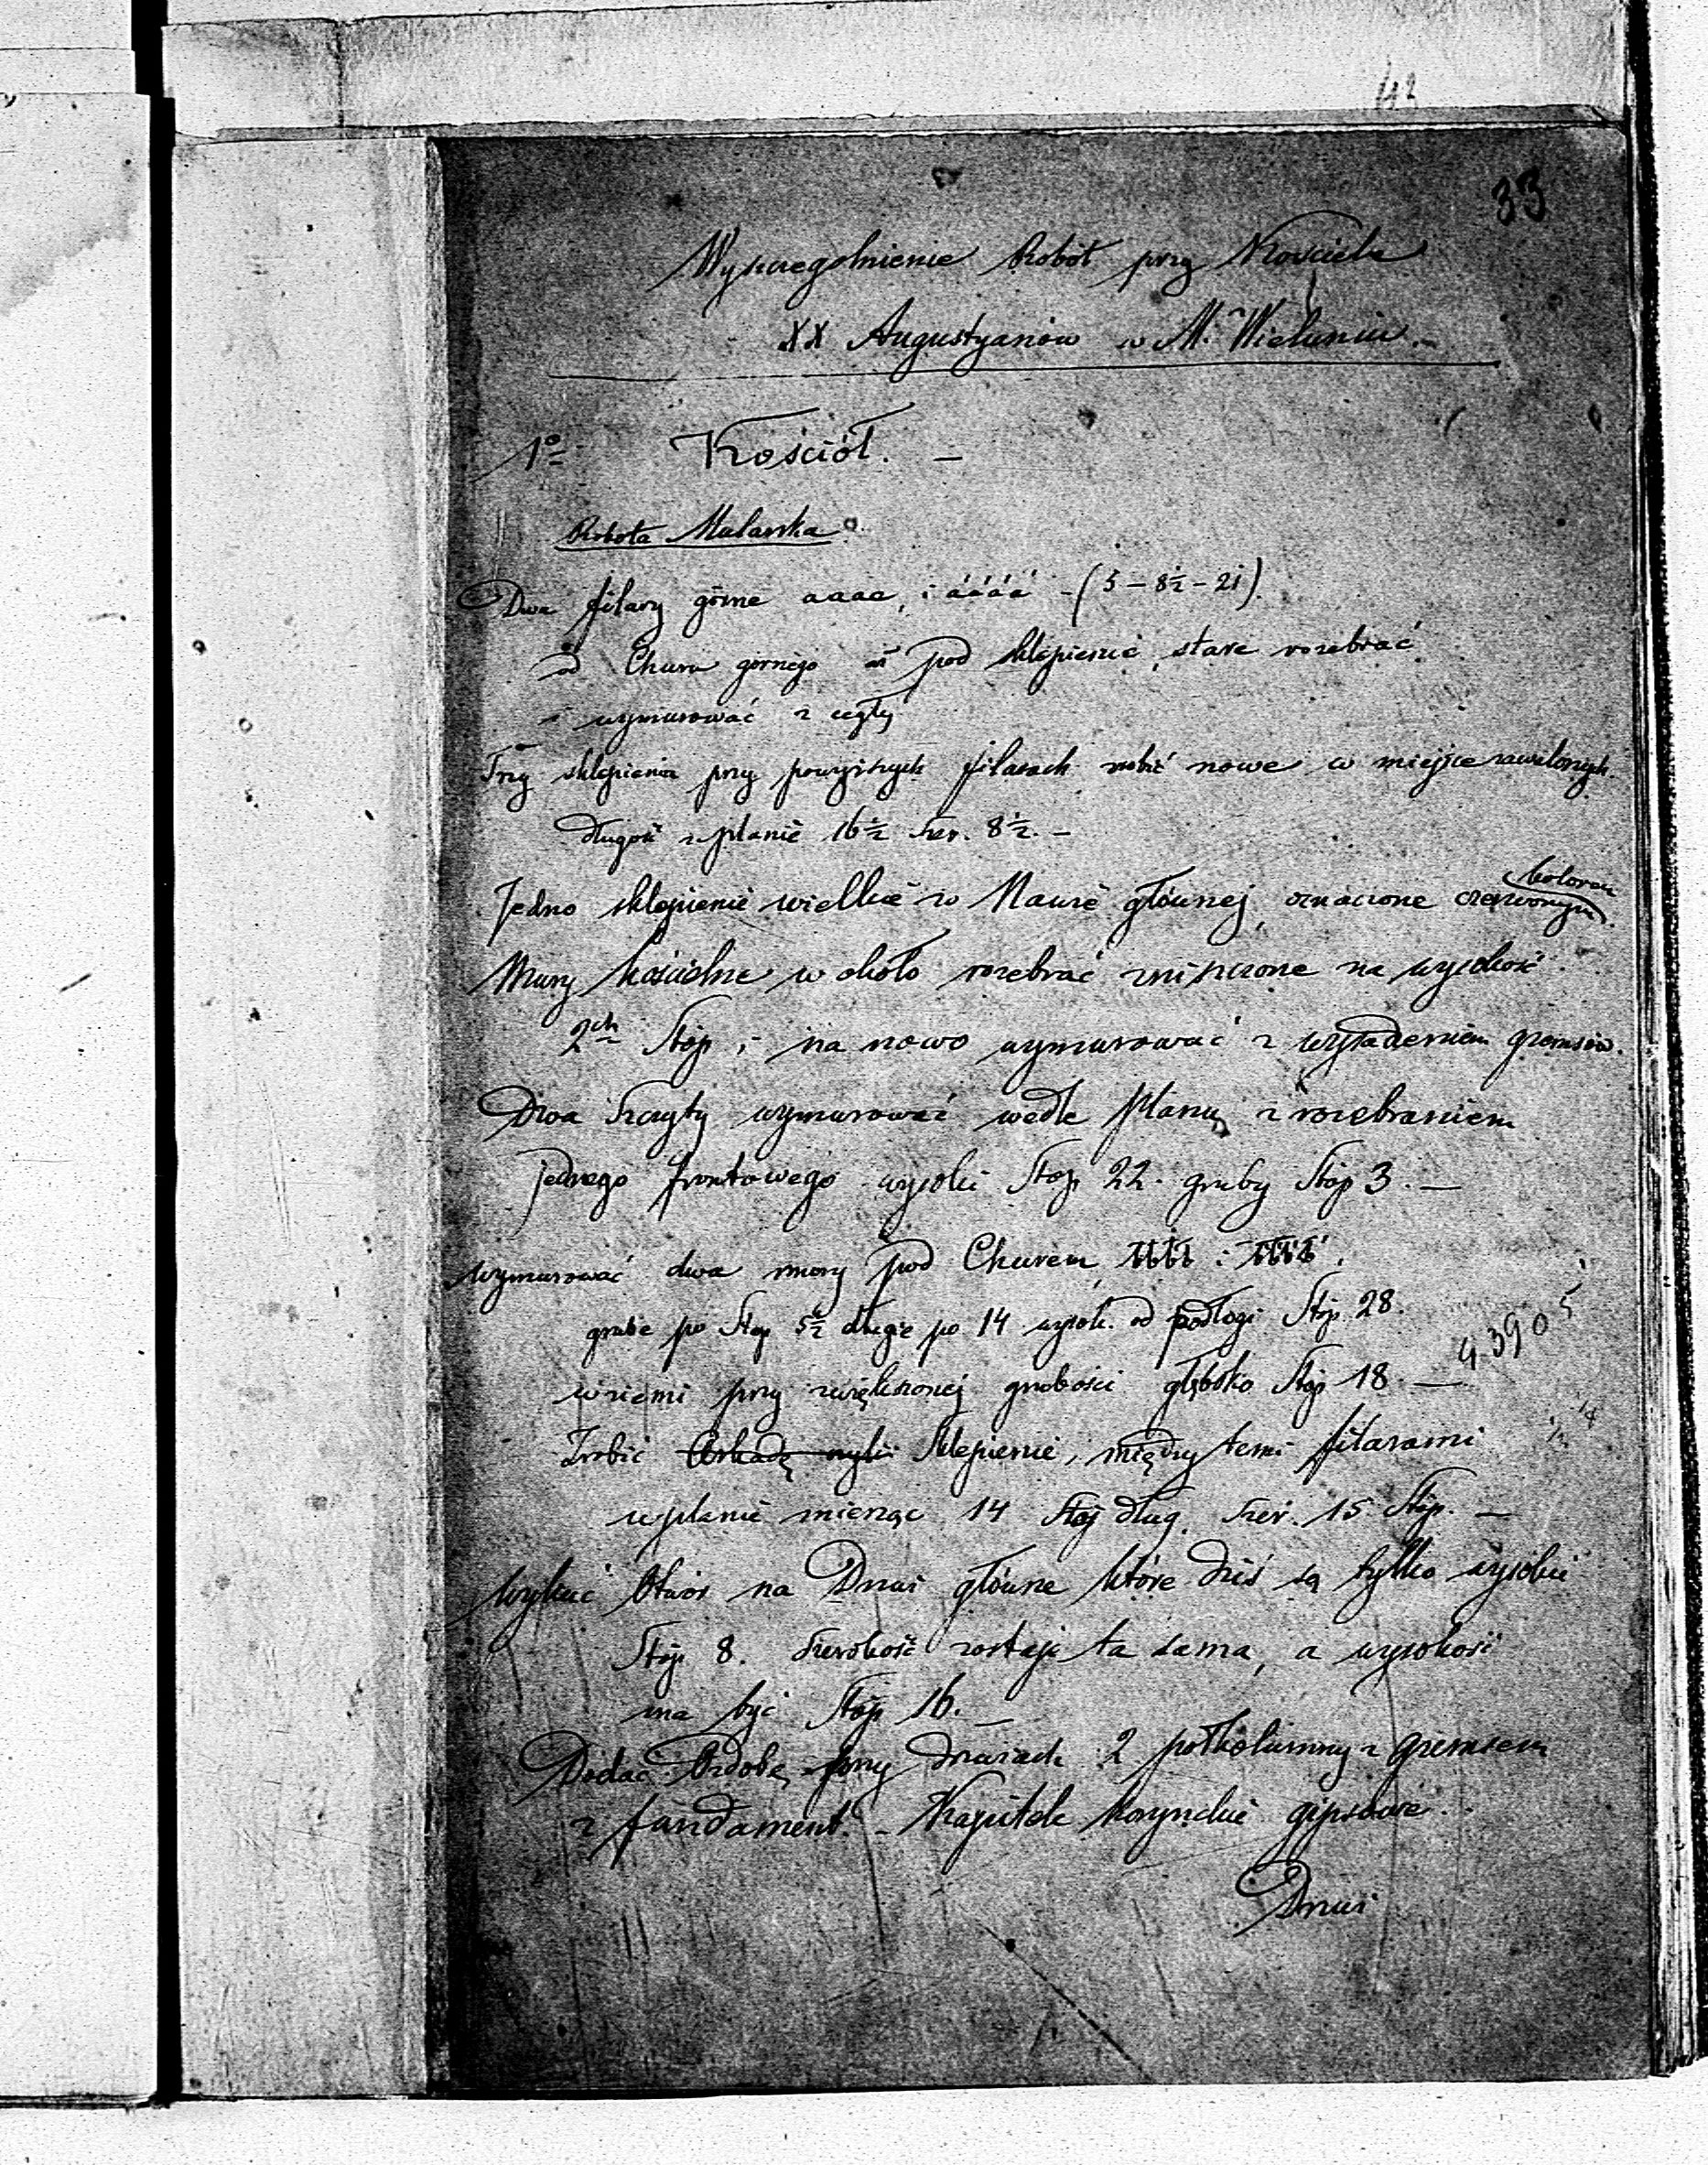 33
Wyszczegolnienie Robót przy Kościele
XX Augustyanów w M. Wieluniu. -
1º Kościół. -
Robota Mularska
Dwa filary górne aaaa, i áááá - (5 - 8½ - 21)
od Churu górnego aż pod sklepienie, stare rozebrać
i wymurować z cegły
Trzy sklepienia przy powyższych filarach robić nowe w miejsce zawalonych.
długość w planie 16½ szer. 8½. -
Jedno sklepienie wielkie w Nawie głównej, oznaczone czerwonym kolorem
Mury kościelne w około rozebrać zniszczone na wysokość
2ch Stóp, i na nowo wymurować z wysadzeniem gzemsów.
Dwa Szczyty wymurować wedle planu, z rozebraniem
jednego frontowego wysoki Stóp 22. gruby Stóp 3. —
wymurować dwa mury pod Churem, bbbb i bbbb.
grube po Stop 5½ długie po 14 wysok. od podłogi Stóp. 28.
w ziemi przy zwiększonej grubości głęboko Stóp 18. —
4.390
Zrobić Arkadę czyli Sklepienie, między temi filarami
w planie mierząc 14 Stóp dług. szer. 15 Stóp. —
Wykuć Otwór na Drzwi główne które dziś są tylko wysokie
Stóp 8. Szerokość zostaje ta sama, a wysokość
ma być Stóp 16. —
Dodać Ozdobę przy drzwiach 2 połkolumny z gzemsem
z fundament. - Kapitele korynckie gipsowe.
Drzwi